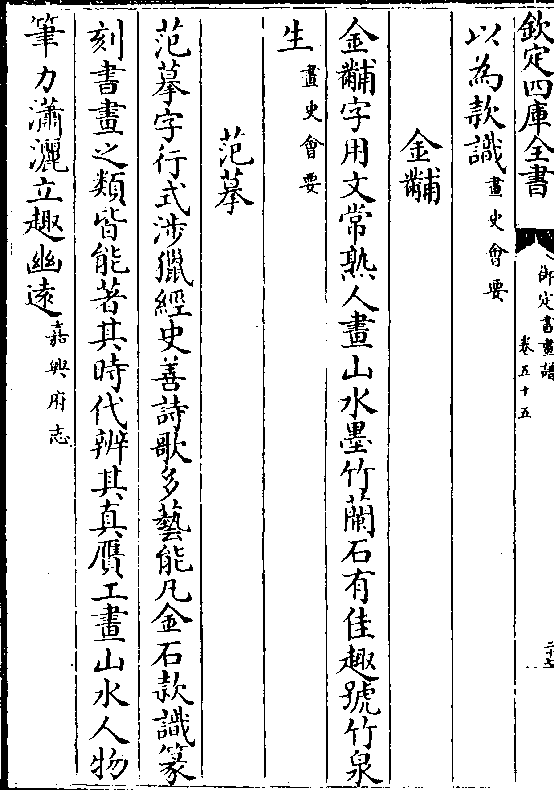 欽定四庫全書
御定書畫譜
卷五十五
以為款識畫史會要
金黼
金黼字用文常熟人畫山水墨竹蘭石有佳趣號竹泉
生畫史會要
范摹
范摹字行式涉獵經史善詩歌多藝能凡金石款識篆
刻書畫之類皆能著其時代辨其真贋工畫山水人物
筆力瀟灑立趣幽遠嘉興府志